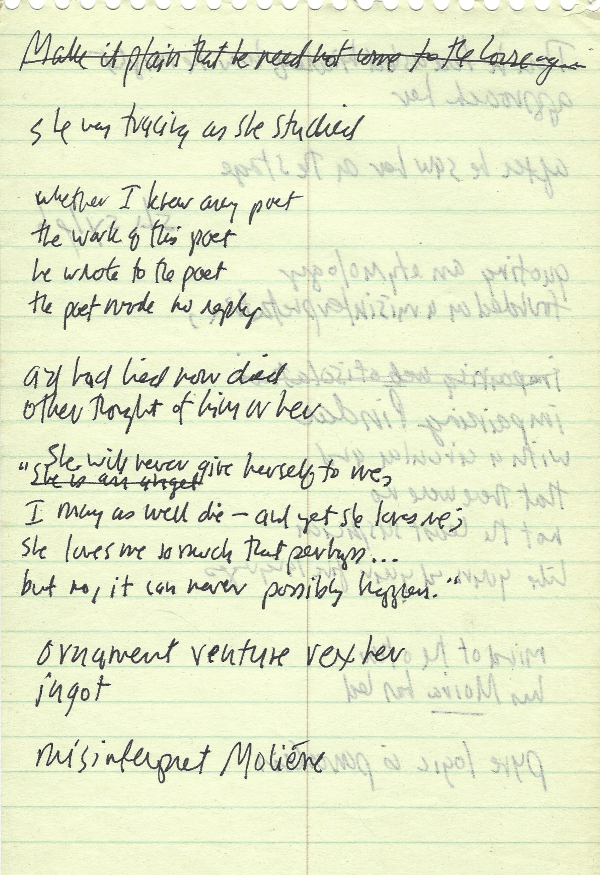 Make it plain that he need not come to the house again
she was tracing as she studied
whether I knew any poet
the work of this poet
he wrote to the poet
the poet made no reply
and had lied now died
other thought of him or her
She will never give herself to me,
"She is an angel
I may as well die – and yet she loves me;
she loves me so much that perhaps...
but no, it can never possibly happen."
ornament venture vex her
ingot
misinterpret Molière